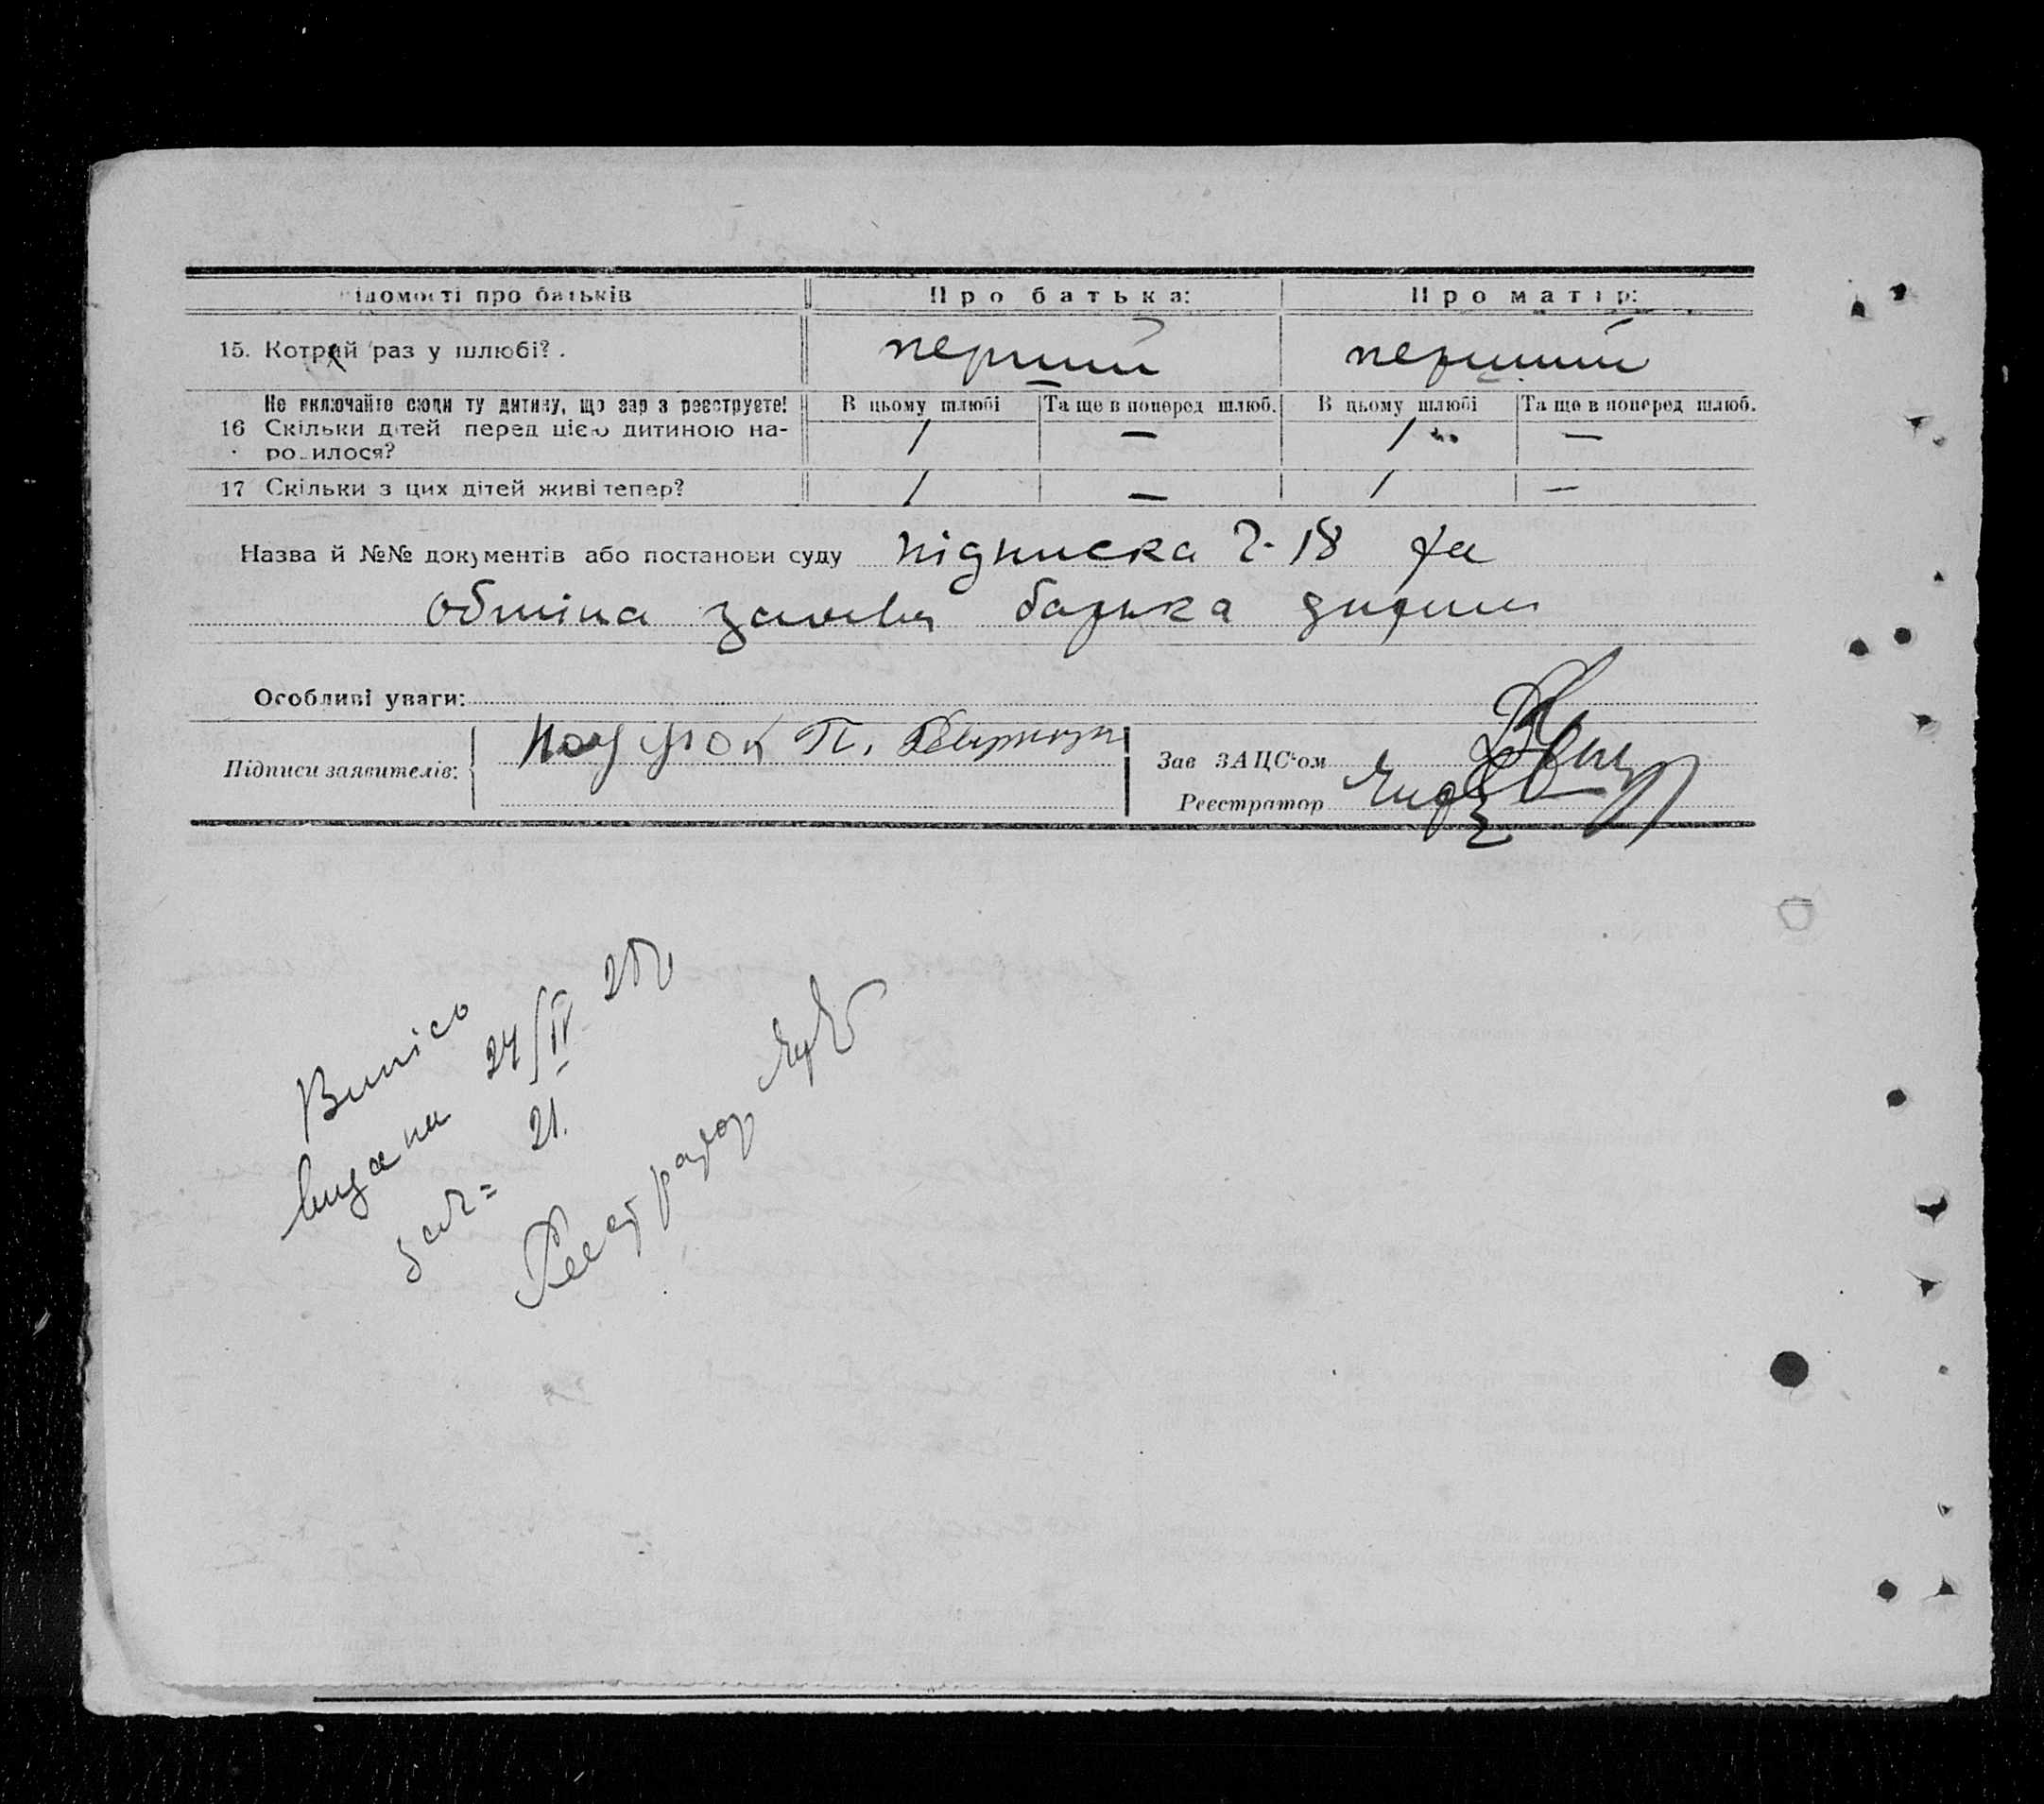 ідомості про батьків Про батька: Про матір:
15. Котрий раз у шлюбі? . перший перший
Не включайте сюди ту дитину, що зараз реєструєте! В цьому шлюбі Та ще в поперед шлюб. В цьому шлюбі Та ще в поперед шлюб.
16 Скільки дітей перед цією дитиною на- 1 — 1 —
родилося?
17 Скільки з цих дітей живі тепер? 1 — 1 —
Назва й №№ документів або постанови суду підписка 2-18 та
обтіна заява батька дитини
Особливі уваги:
Підписи заявителів: П.
Зав ЗАЦС'ом
Реєстратор
Випісь
видана 24/IV 28р
за № 21.
Реєстратор